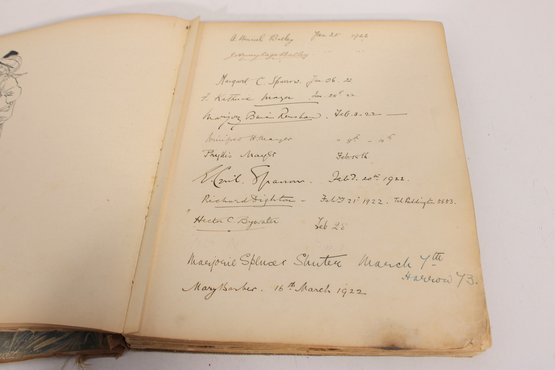 A. Muriel Bailey Jan 25 1922
" "
Margaret C. Sparrow Jan 26. 22
F. Kathleen Mayer Jan 26th 22
Marjory Renshaw. Feb. 2. 22 —
Winifred H. Mayer " 9th - 14th
Phyllis Mayer Feb 10th
Cyril Sparrow. Feb. 20th 1922.
Richard Dighton - Feb. 21st 1922. Tel. Paddington
Hector C. Bywater Feb 25
Marjorie Spencer Shuter March 7th
Harrow 73.
Mary Barber. 16th March 1922